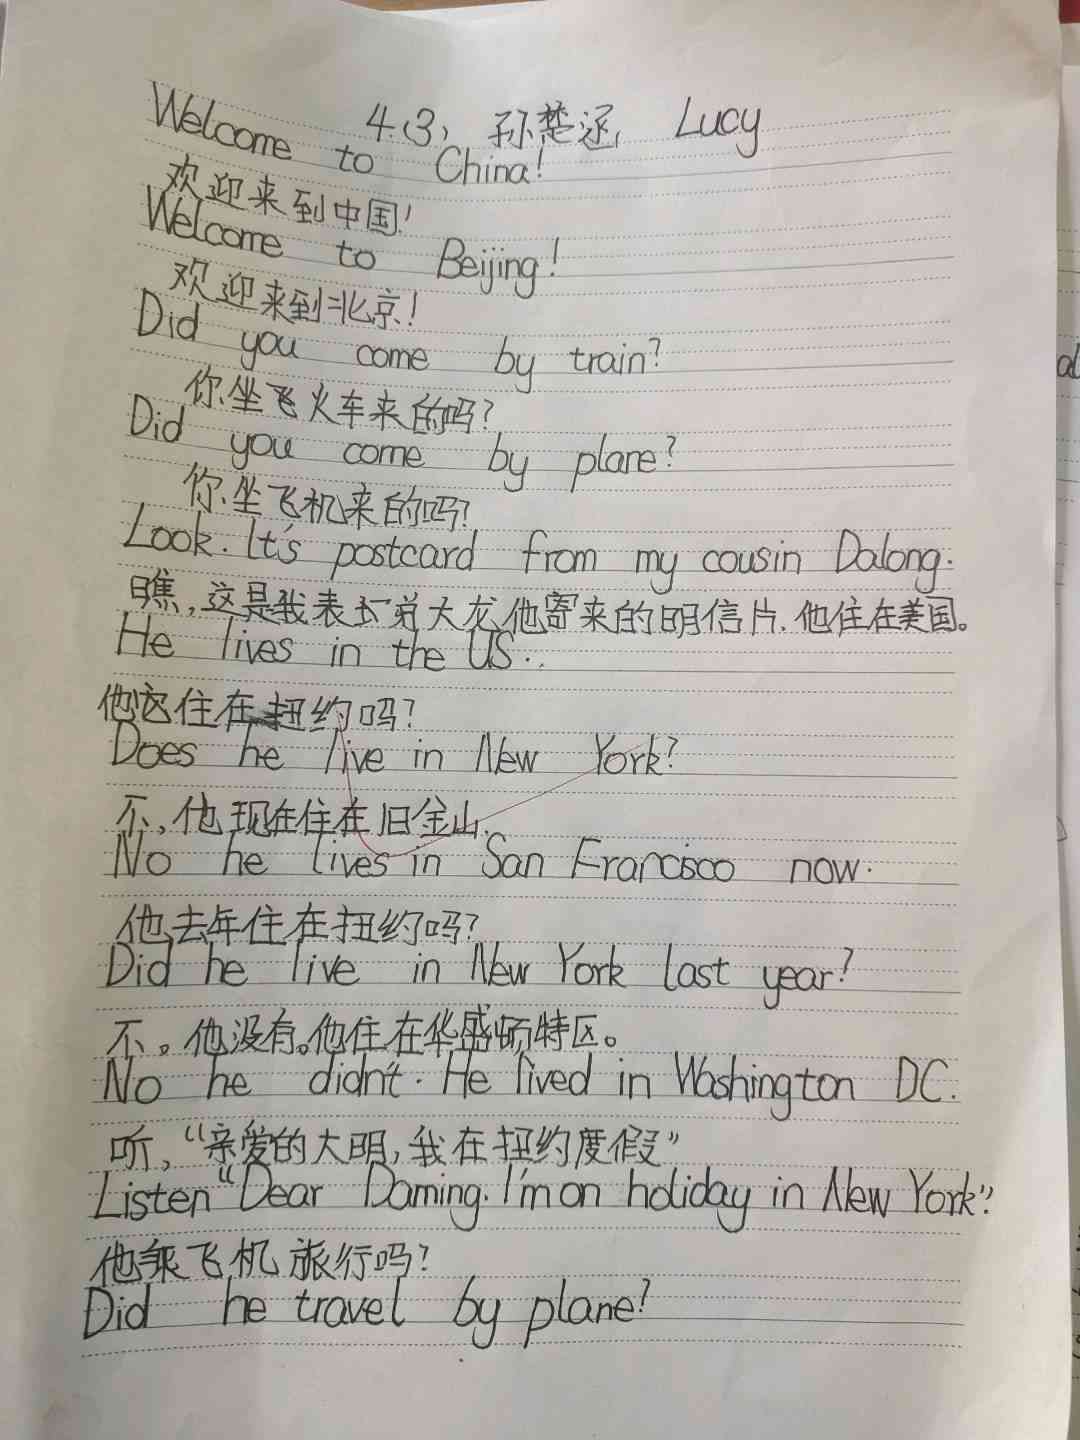 4(3), 孙楚涵, Lucy
Welcome to China!
欢迎来到中国!
Welcome to Beijing!
欢迎来到北京!
Did you come by train?
你坐飞火车来的吗?
Did you come by plane?
你坐飞机来的吗?
Look. It's postcard from my cousin Dalong.
瞧,这是我表 大龙他寄来的明信片.他住在美国。
He lives in the US..
他 住在 扭约吗?
Does he live in New York?
不,他现在住在旧金山.
No he lives in San Francisco now.
他去年住在扭约吗?
Did he live in New York last year?
不。他没有。他住在华盛顿特区。
No he didn't. He lived in Washington DC.
听,“亲爱的大明,我在扭约度假”
Listen “Dear Daming. I'm on holiday in New York”.
他乘飞机旅行吗?
Did he travel by plane?